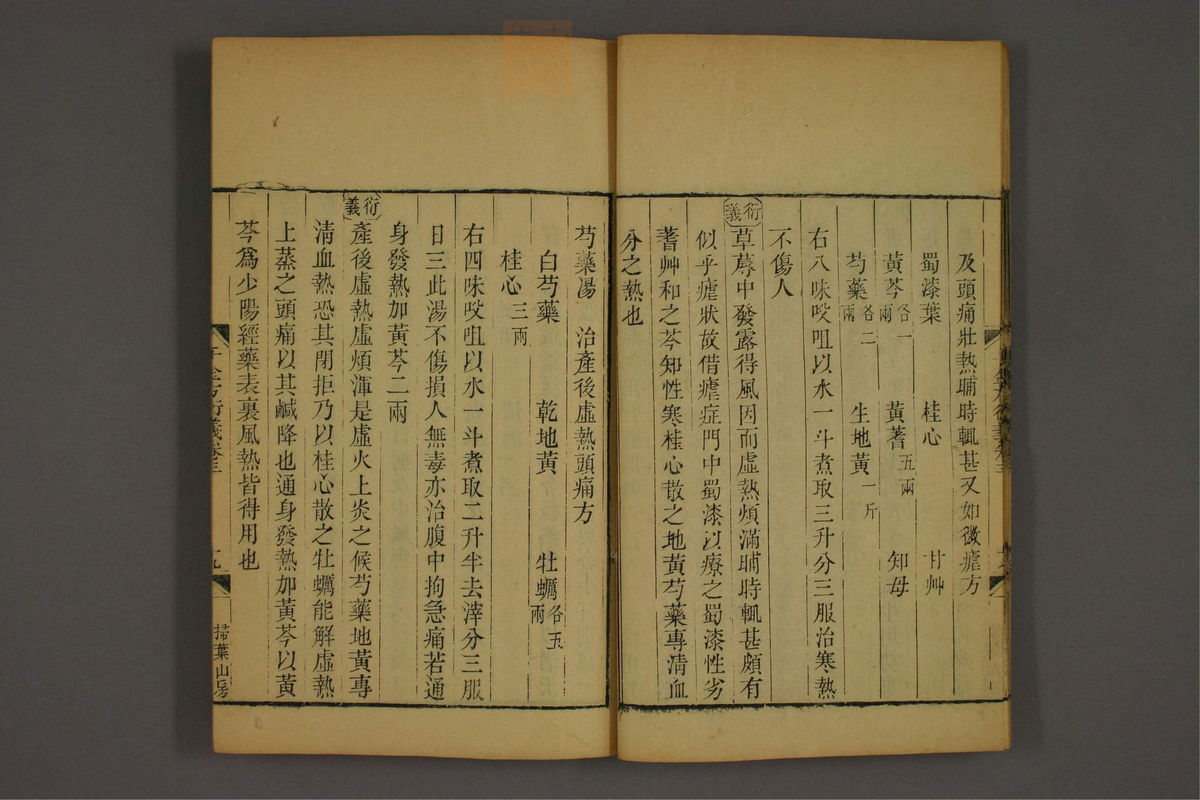 及頭痛壯熱晡時輒甚又如微瘧方
蜀漆葉 桂心 甘艸
黃芩各一兩 黃蓍五兩 知母
芍藥各二兩 生地黃一斤
右八味㕮咀以水一斗煮取三升分三服治寒熱
不傷人
衍義
草蓐中發露得風因而虛熱煩滿晡時輒甚頗有
似乎瘧狀故借瘧症門中蜀漆以療之蜀漆性劣
蓍艸和之芩知性寒桂心散之地黃芍藥專清血
分之熱也
芍藥湯 治產後虛熱頭痛方
白芍藥 乾地黃 牡蠣各五兩
桂心三兩
右四味㕮咀以水一斗煮取二升半去滓分三服
日三此湯不傷損人無毒亦治腹中拘急痛若通
身發熱加黃芩二兩
衍義
產後虛熱虛煩渾是虛火上炎之候芍藥地黃專
清血熱恐其閉拒乃以桂心散之牡蠣能解虛熱
上蒸之頭痛以其鹹降也通身發熱加黃芩以黃
芩爲少陽經藥表裏風熱皆得用也
千金方衍義卷三
掃葉山房